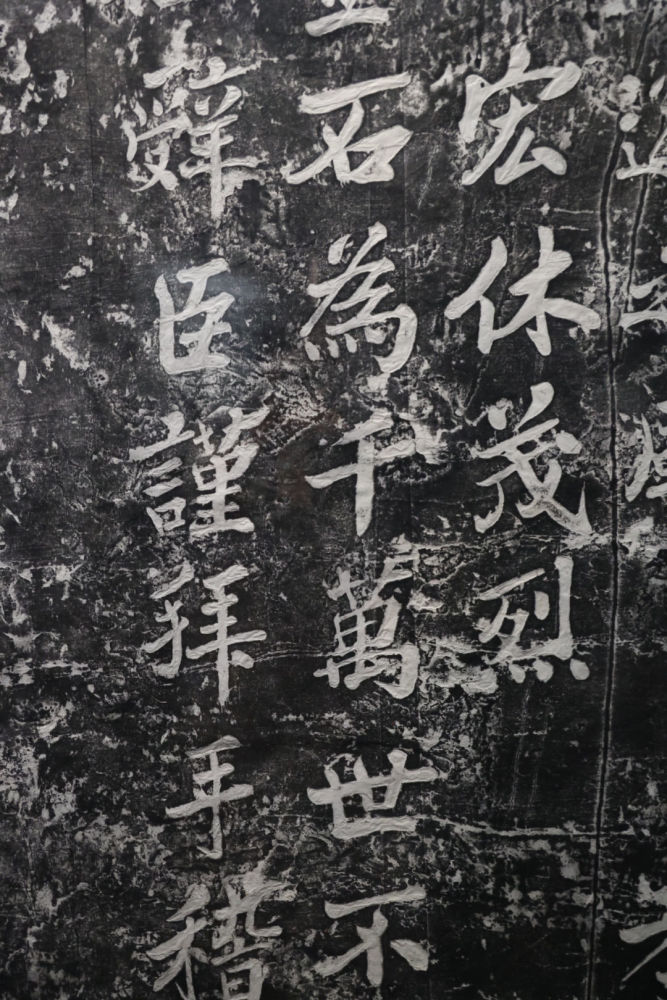 宏休茂烈
石為千萬世不
辤臣謹拜手稽